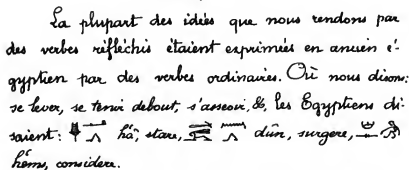 La plupart des idées que nous rendons par
des verbes réfléchis étaient exprimées en ancien é-
gyptien par des verbes ordinaires. Où nous disons:
se lever, se tenir debout, s'asseoir, &, les Egyptiens di-
saient: hâ, stare, dûn, surgere,
hems, considere.